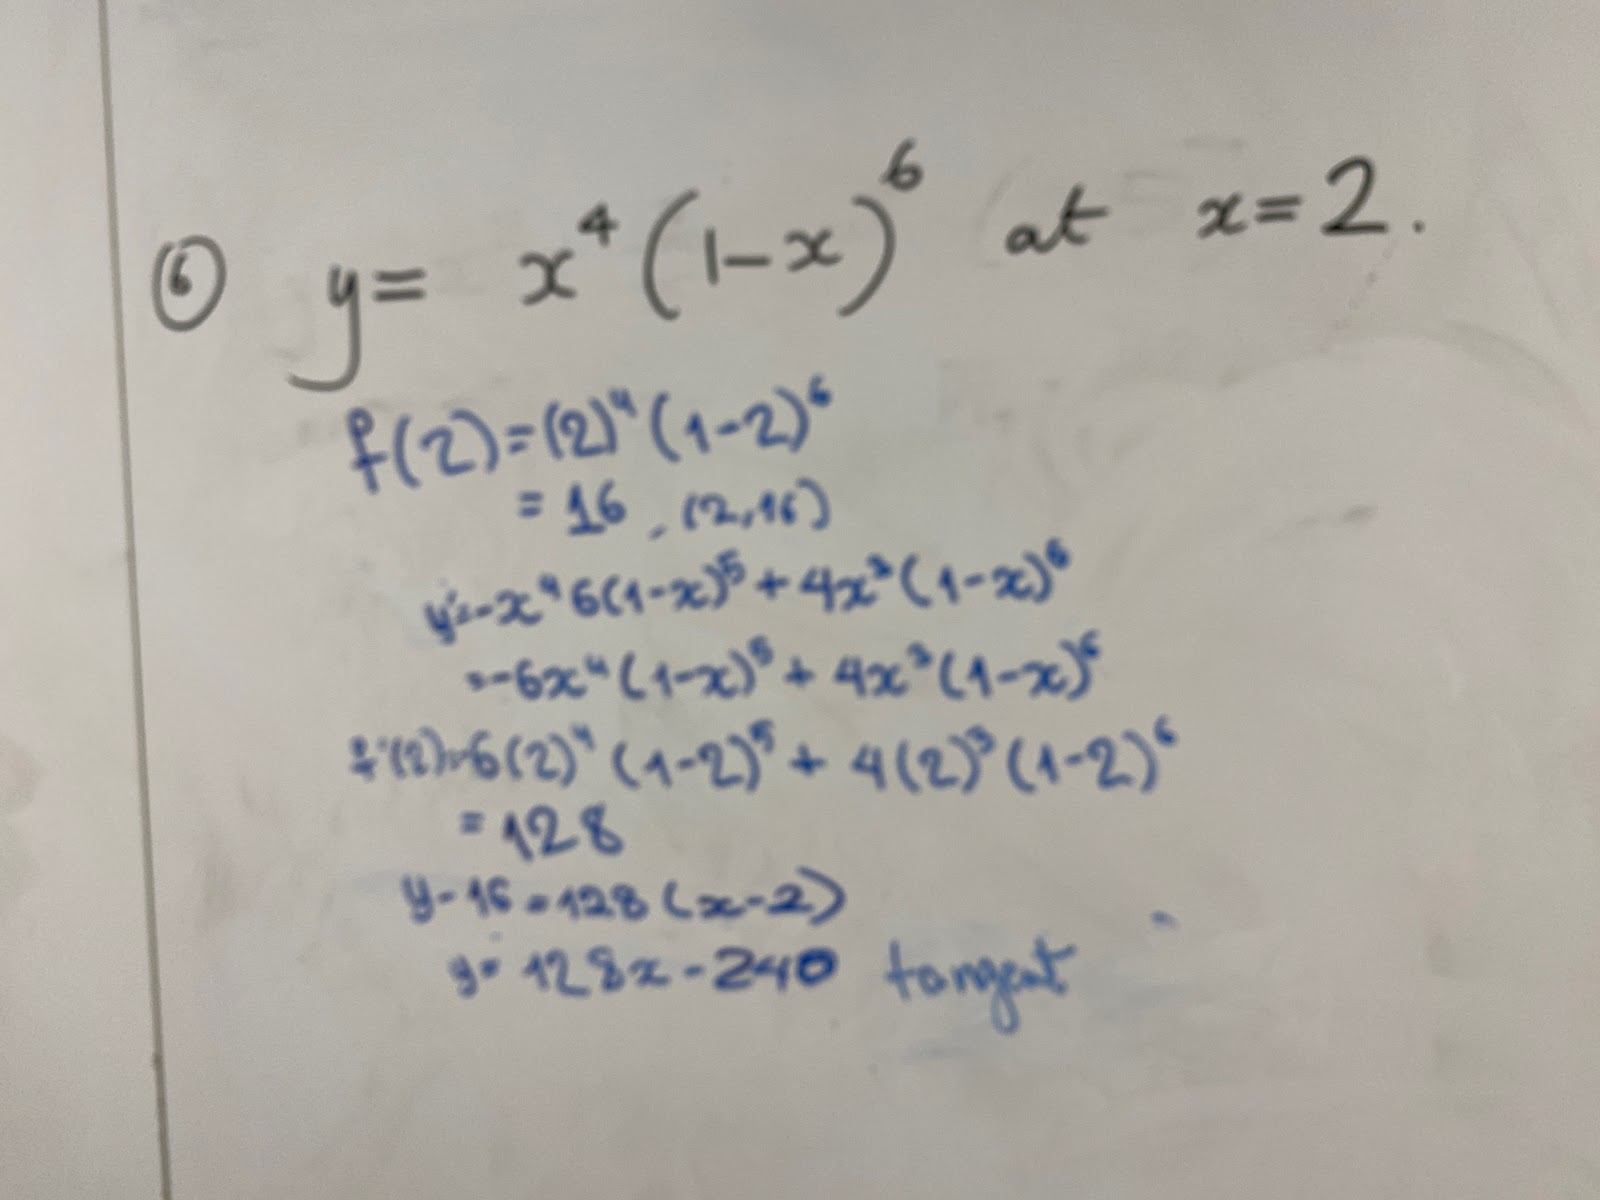 ⑥ y = x⁴(1-x)⁶ at x=2.
f(2)=(2)⁴(1-2)⁶
= 16, (2,16)
y'=-x⁴6(1-x)⁵+4x³(1-x)⁶
=-6x⁴(1-x)⁵+4x³(1-x)⁶
f'(2)=-6(2)⁴(1-2)⁵+4(2)³(1-2)⁶
=128
y-16=128(x-2)
y=128x-240 tangent